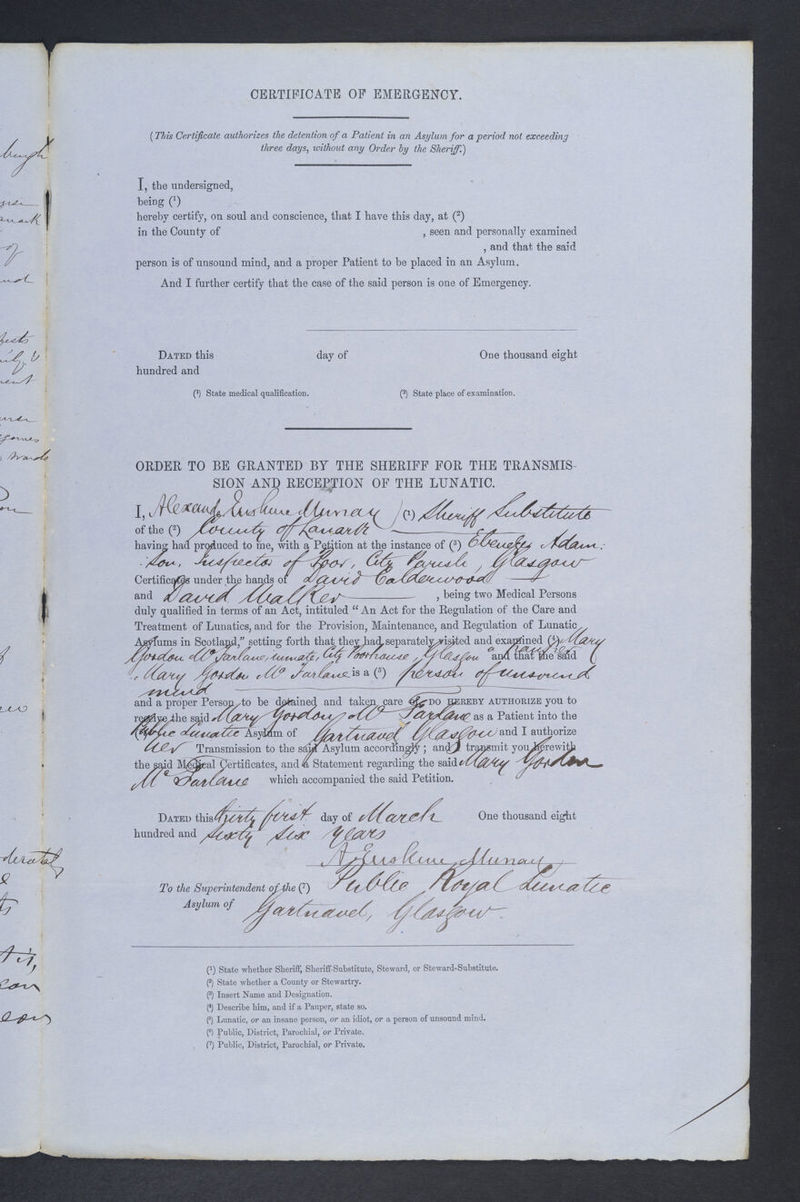 CERTIFICATE OF EMERGENCY.
(This Certificate authorizes the detention of a Patient in an Asylum for a period not exceeding
three days, without any Order by the Sheriff.)
I, the undersigned,
being (¹)
hereby certify, on soul and conscience, that I have this day, at (²)
in the County of , seen and personally examined
, and that the said
person is of unsound mind, and a proper Patient to be placed in an Asylum.
And I further certify that the case of the said person is one of Emergency.
DATED this day of One thousand eight
hundred and
(¹) State medical qualification. (²) State place of examination.
ORDER TO BE GRANTED BY THE SHERIFF FOR THE TRANSMIS-
SION AND RECEPTION OF THE LUNATIC.
I, Alexander Erskine Murray (¹) Sheriff Substitute
of the (²) County of Lanark
having had produced to me, with a Petition at the instance of (³) Ebenezer Adam-
son, Inspector of Poor, City Parish, Glasgow
Certificates under the hands of David Calderwood
and David Walker , being two Medical Persons
duly qualified in terms of an Act, intituled "An Act for the Regulation of the Care and
Treatment of Lunatics, and for the Provision, Maintenance, and Regulation of Lunatic
Asylums in Scotland," setting forth that they had separately visited and examined (⁴) Mary
Gordon McFarlane, inmate, City Poorhouse, Glasgow a Pauper and that the said
Mary Gordon McFarlane is a (⁵) person of unsound
mind
and a proper Person to be detained and taken care of, DO HEREBY AUTHORIZE you to
receive the said Mary Gordon McFarlane as a Patient into the
(⁶) Public Lunatic Asylum of Gartnavel Glasgow and I authorize
her Transmission to the said Asylum accordingly; and I transmit you herewith
the said Medical Certificates, and a Statement regarding the said Mary Gordon
McFarlane which accompanied the said Petition.
DATED this thirty first day of March One thousand eight
hundred and sixty six years
A Erskine Murray
To the Superintendent of the (⁷) Public Royal Lunatic
Asylum of Gartnavel, Glasgow.
(¹) State whether Sheriff, Sheriff-Substitute, Steward, or Steward-Substitute.
(²) State whether a County or Stewartry.
(³) Insert Name and Designation.
(⁴) Describe him, and if a Pauper, state so.
(⁵) Lunatic, or an insane person, or an idiot, or a person of unsound mind.
(⁶) Public, District, Parochial, or Private.
(⁷) Public, District, Parochial, or Private.